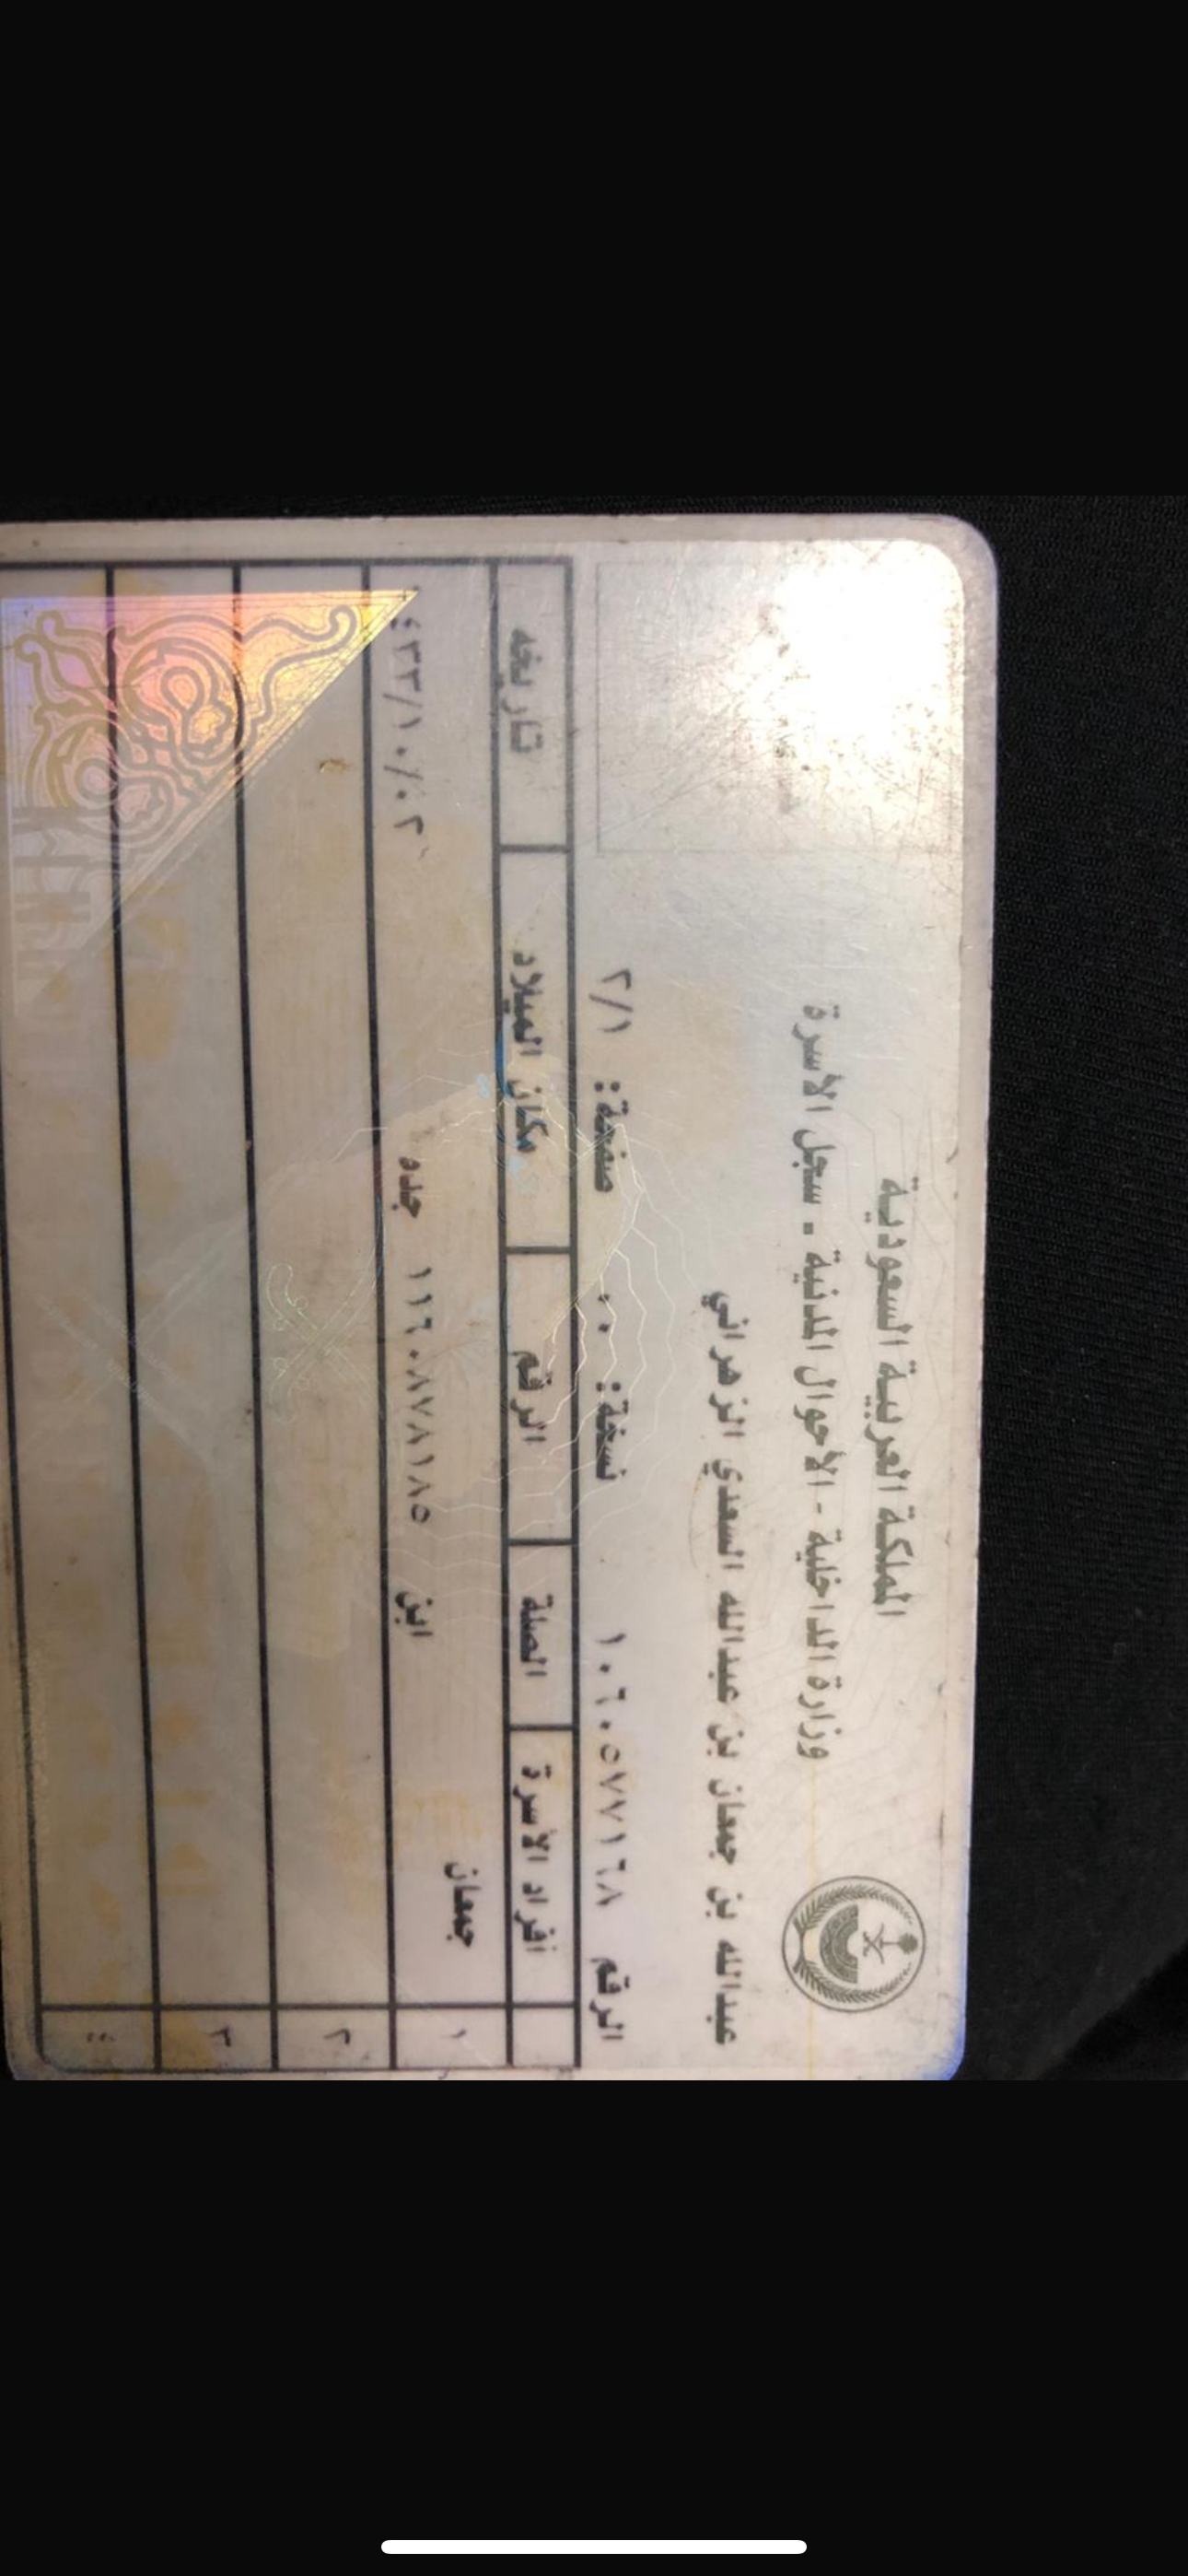 المملكة العربية السعودية
وزارة الداخلية - الأحوال المدنية - سجل الأسرة
عبدالله بن جمعان بن عبدالله السعدي الزهراني
الرقم ١٠٦٠٥٧٧١٦٨ نسخة: ٠٠ صفحة: ٢/١
أفراد الأسرة الصلة الرقم مكان الميلاد تاريخه
١ جمعان ابن ١١٦٠٨٧٨١٨٥ جده ٤٣٣/١٠/٠٢
٢
٣
٤